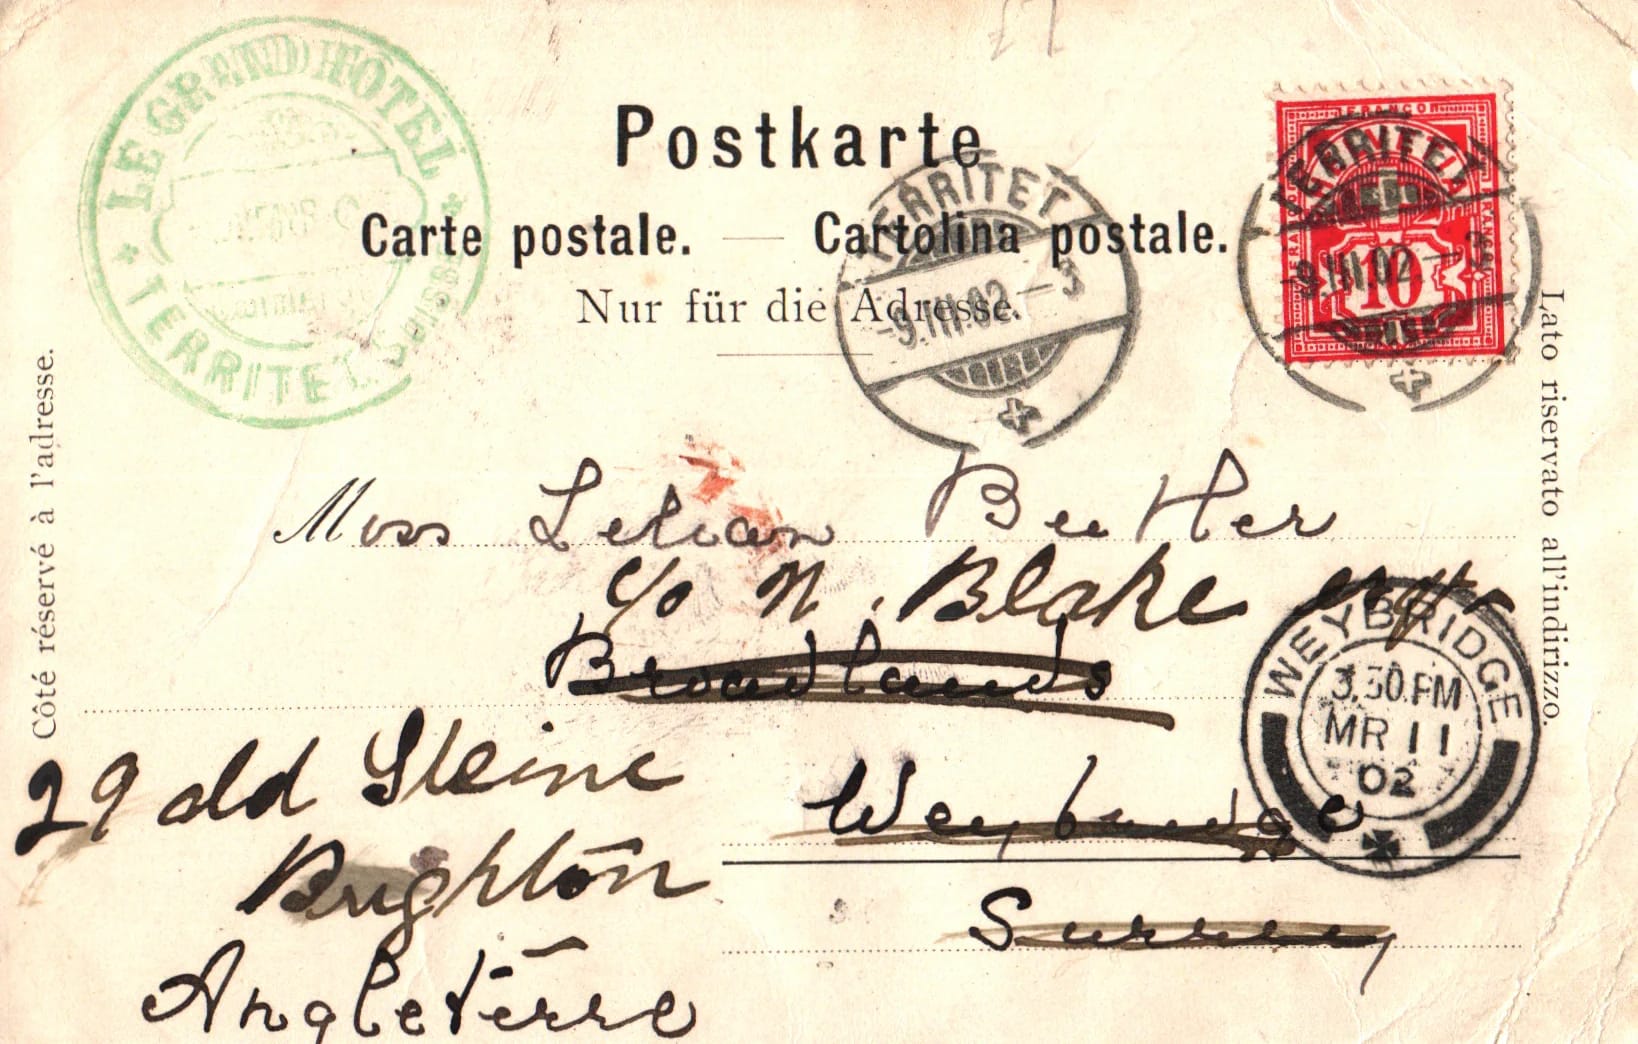 LE GRAND HÔTEL
TERRITET Suisse
Postkarte
Carte postale. — Cartolina postale.
Nur für die Adresse.
TERRITET
-9.III.02.-3
FRANCO
TERRITET
-9.III.02-3
10
Côté réservé à l'adresse.
Lato riservato all'indirizzo.
Miss Lilian
c/o N. Blake esq
Broadlands
WEYBRIDGE
3.30.PM
MR 11
02
29 Old Steine
Weybridge
Brighton
Surrey
Angleterre